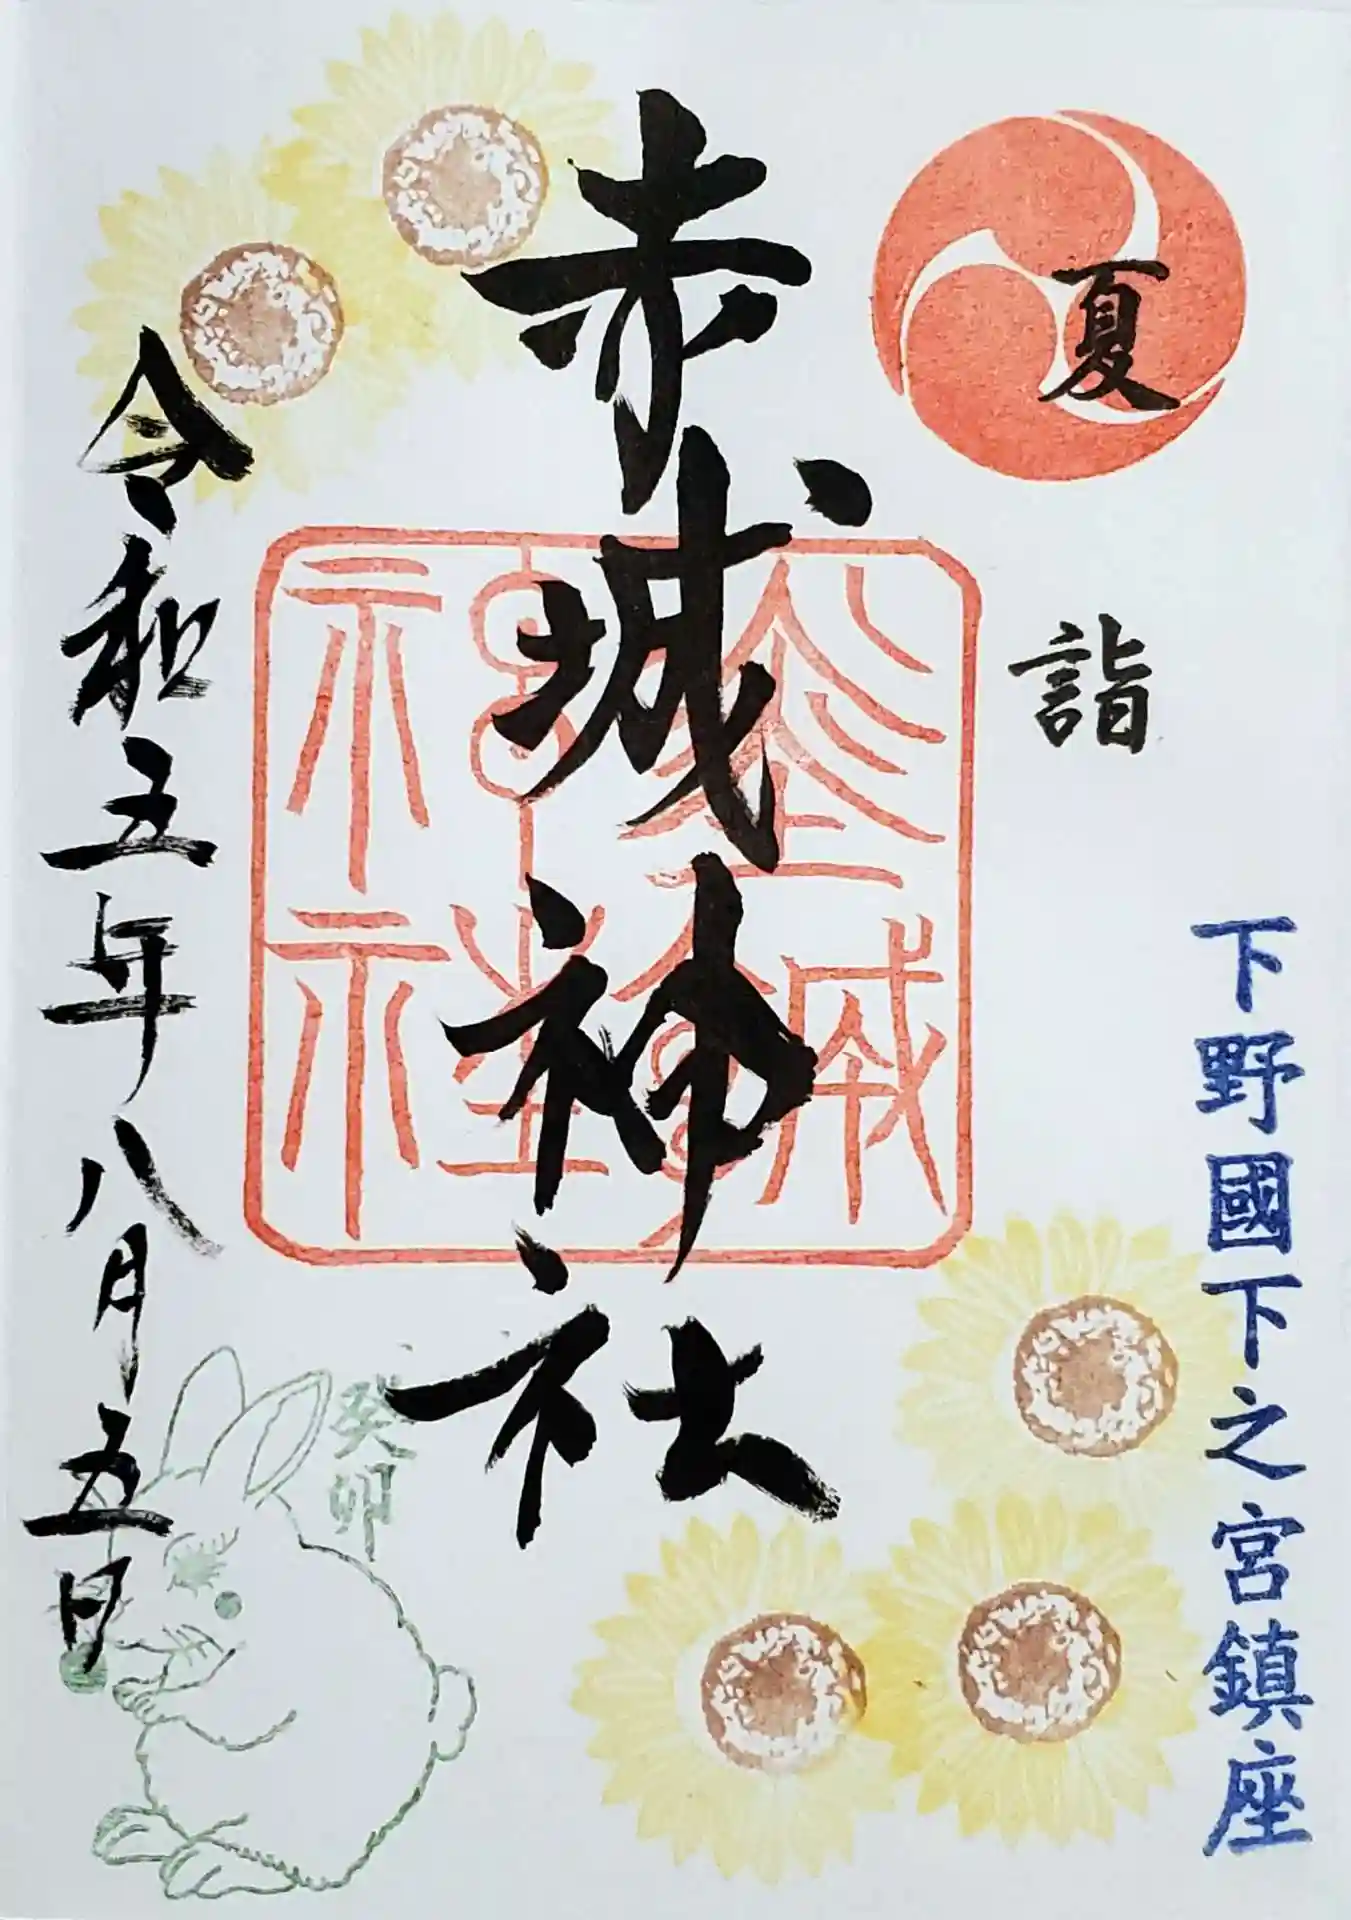 下野國下之宮鎮座
夏詣
赤城神社
令和五年八月五日
癸卯